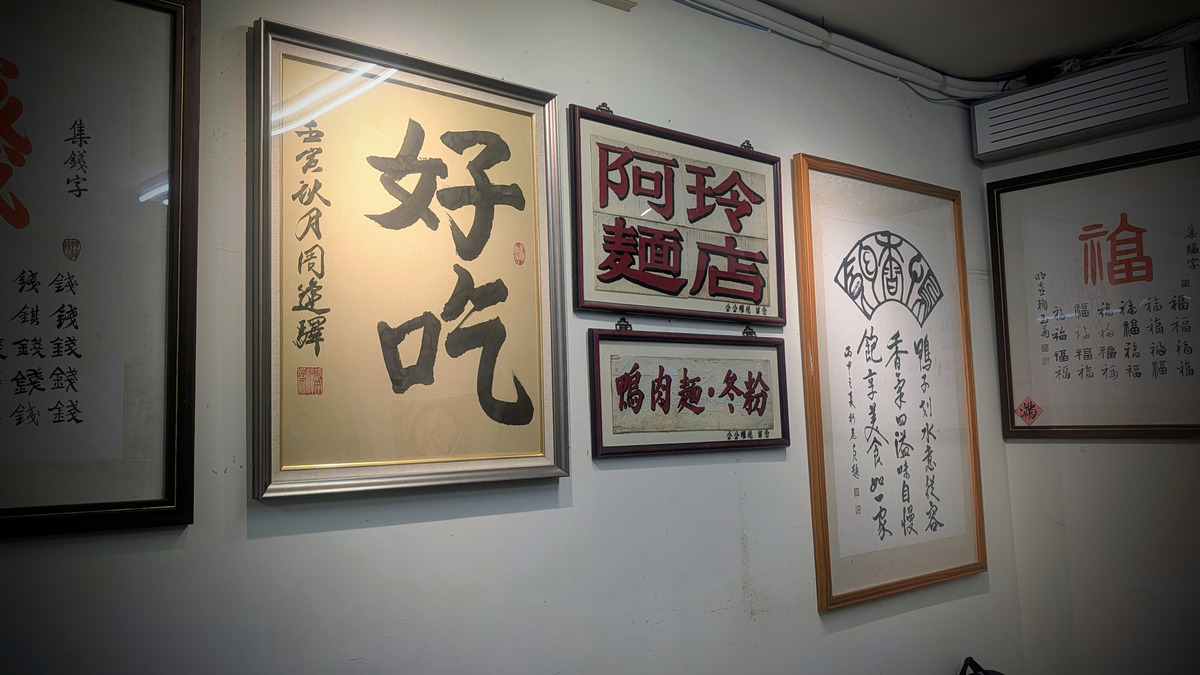 集錢字
錢錢
錢錢
錢錢
錢錢
錢錢
好吃
壬寅秋月周逸驛
阿玲
麵店
鴨肉麵·冬粉
鴨子划水意從容
香氣四溢味自慢
飽享美食如一家
福
集福字
福福福福福福
福福福福福福
福福福福福福
福福福福福福
滿